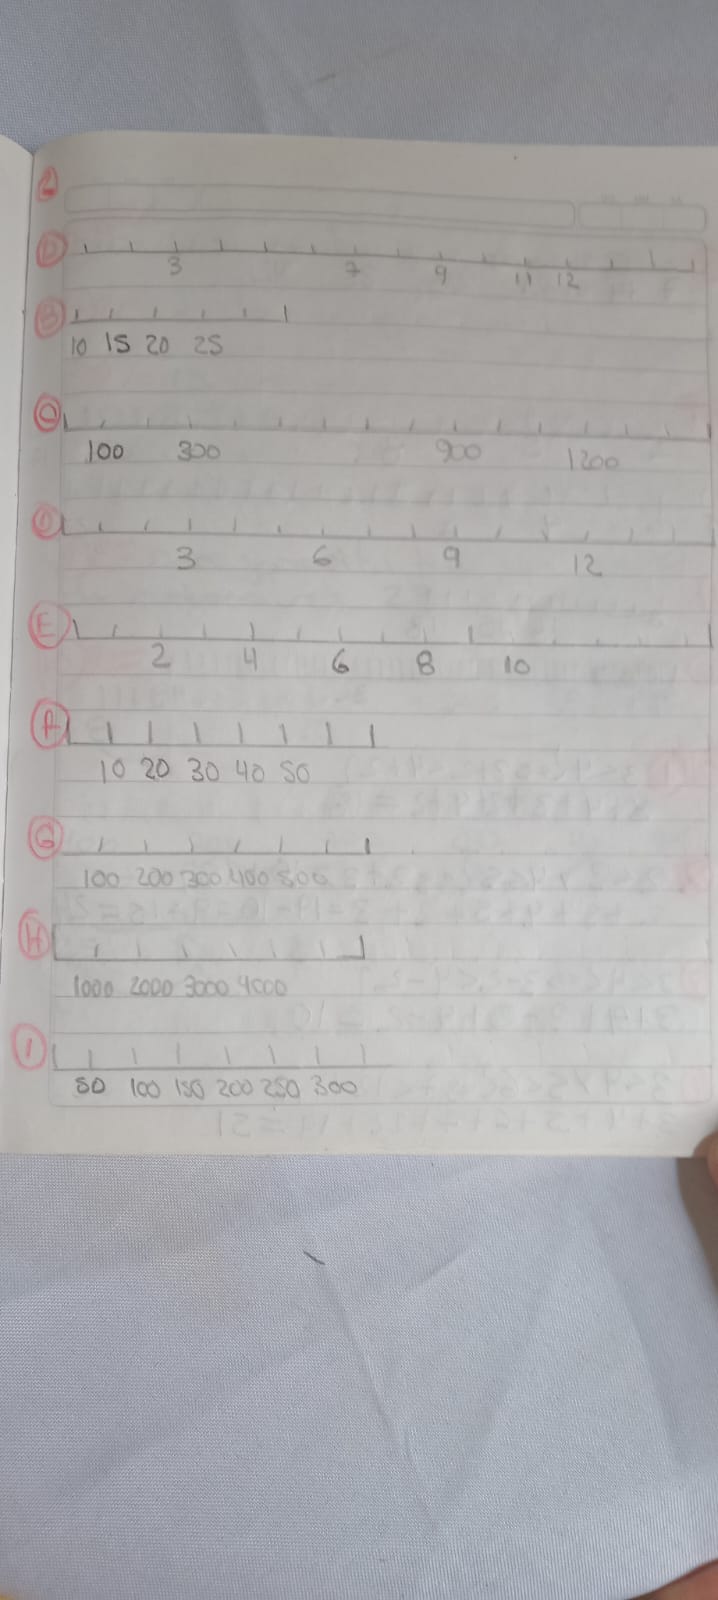 2
D 3 7 9 11 12
B
10 15 20 25
C
100 300 900 1200
D
3 6 9 12
E
2 4 6 8 10
A
10 20 30 40 50
G
100 200 300 400 500
H
1000 2000 3000 4000
I
50 100 150 200 250 300